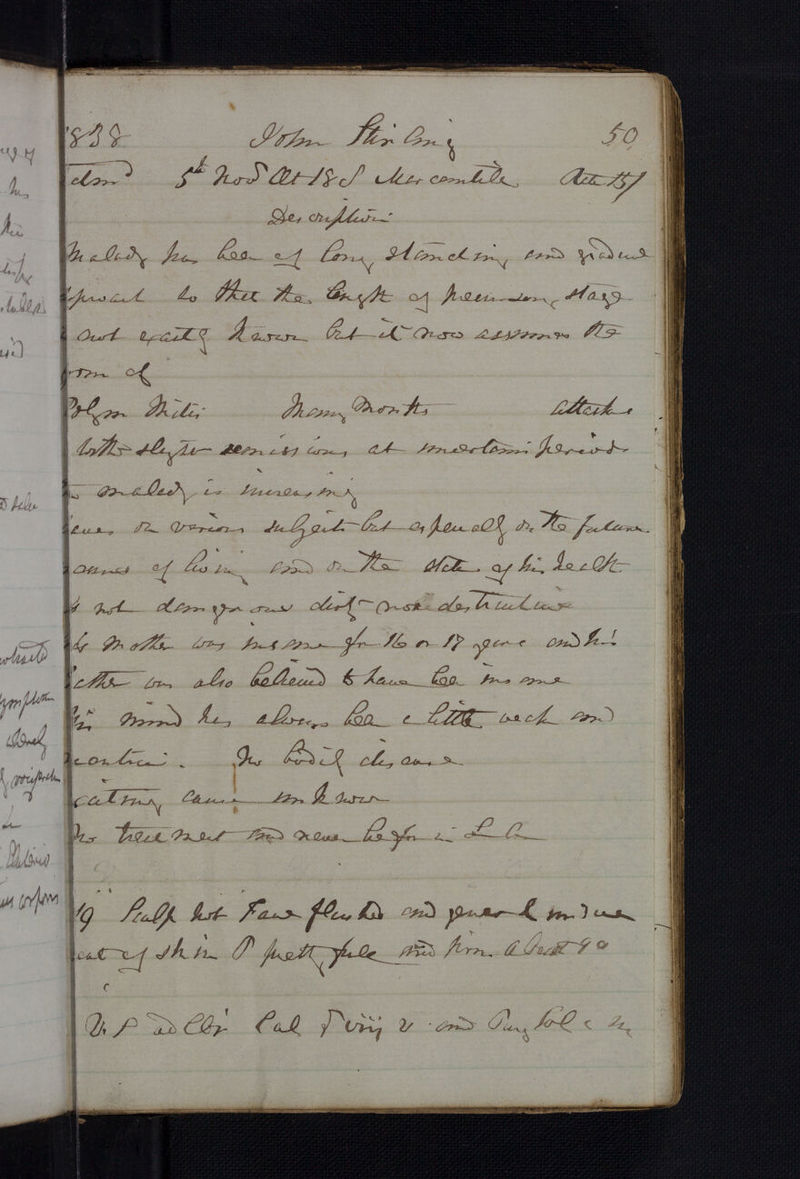 1838 John Stirling 50
adm^d 5th Nov^r Aet 18 S Mercantile
Description
Malady has been of long standing and gradual
approach so that the length of stage
not exactly known but it now assumes the
form of
Many Months attacks
with slight remissions at uncertain periods
malady is increasing
on various subjects but especially on the future
means of living and on the state of his health
is not dangerous dirty nor destructive
His Mother was insane for 16 or 17 years and his
father was also believed to have bee insane
His mind has always bee a little weak and
No bodily disease
exciting cause unknown
No treatment and never before in L A
19 Scalp hot Face flushed and general undue
heat of skin P pretty full and firm about 90
V.S ad Cal and Purg